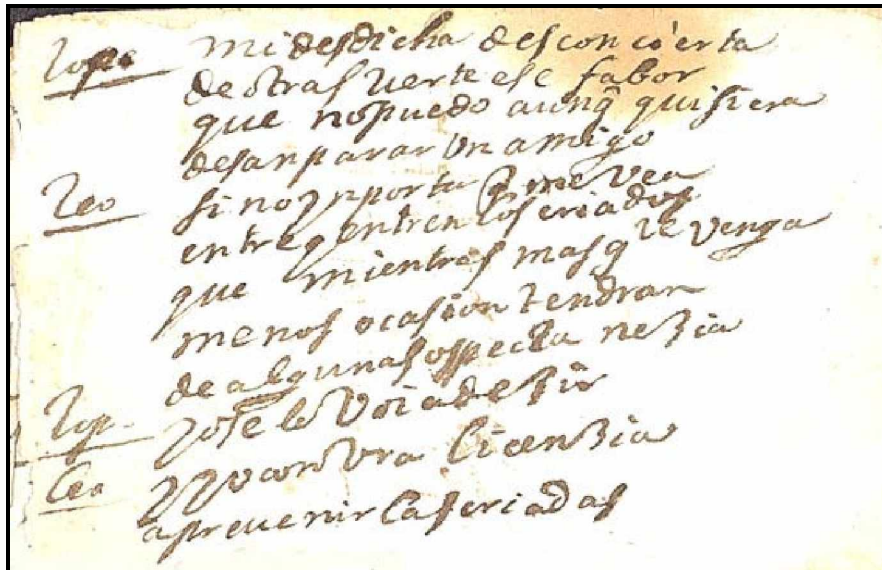 Lope mi desdicha desconcierta
de otra suerte ese fabor
que no puedo aunq̃ quisiera
desanparar un amigo
Leo si no ynporta q̃ me vea
entre q entren los criados
que mientras mas q le venga
menos ocasion tendran
de alguna sospecha nezia
Lop. yo se lo voi a dezir
Leo y yo con vra licenzia
a prevenir las criadas